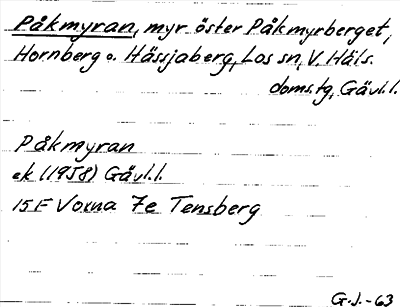 Påkmyran, myr öster Påkmyrberget,
Hornberg o. Hässjaberg, Los sn, V. Häls.
doms.tg, Gävl.l.
Påkmyran
ek (1958) Gävl.l.
15F Voxna 7e Tensberg
G.J.-63